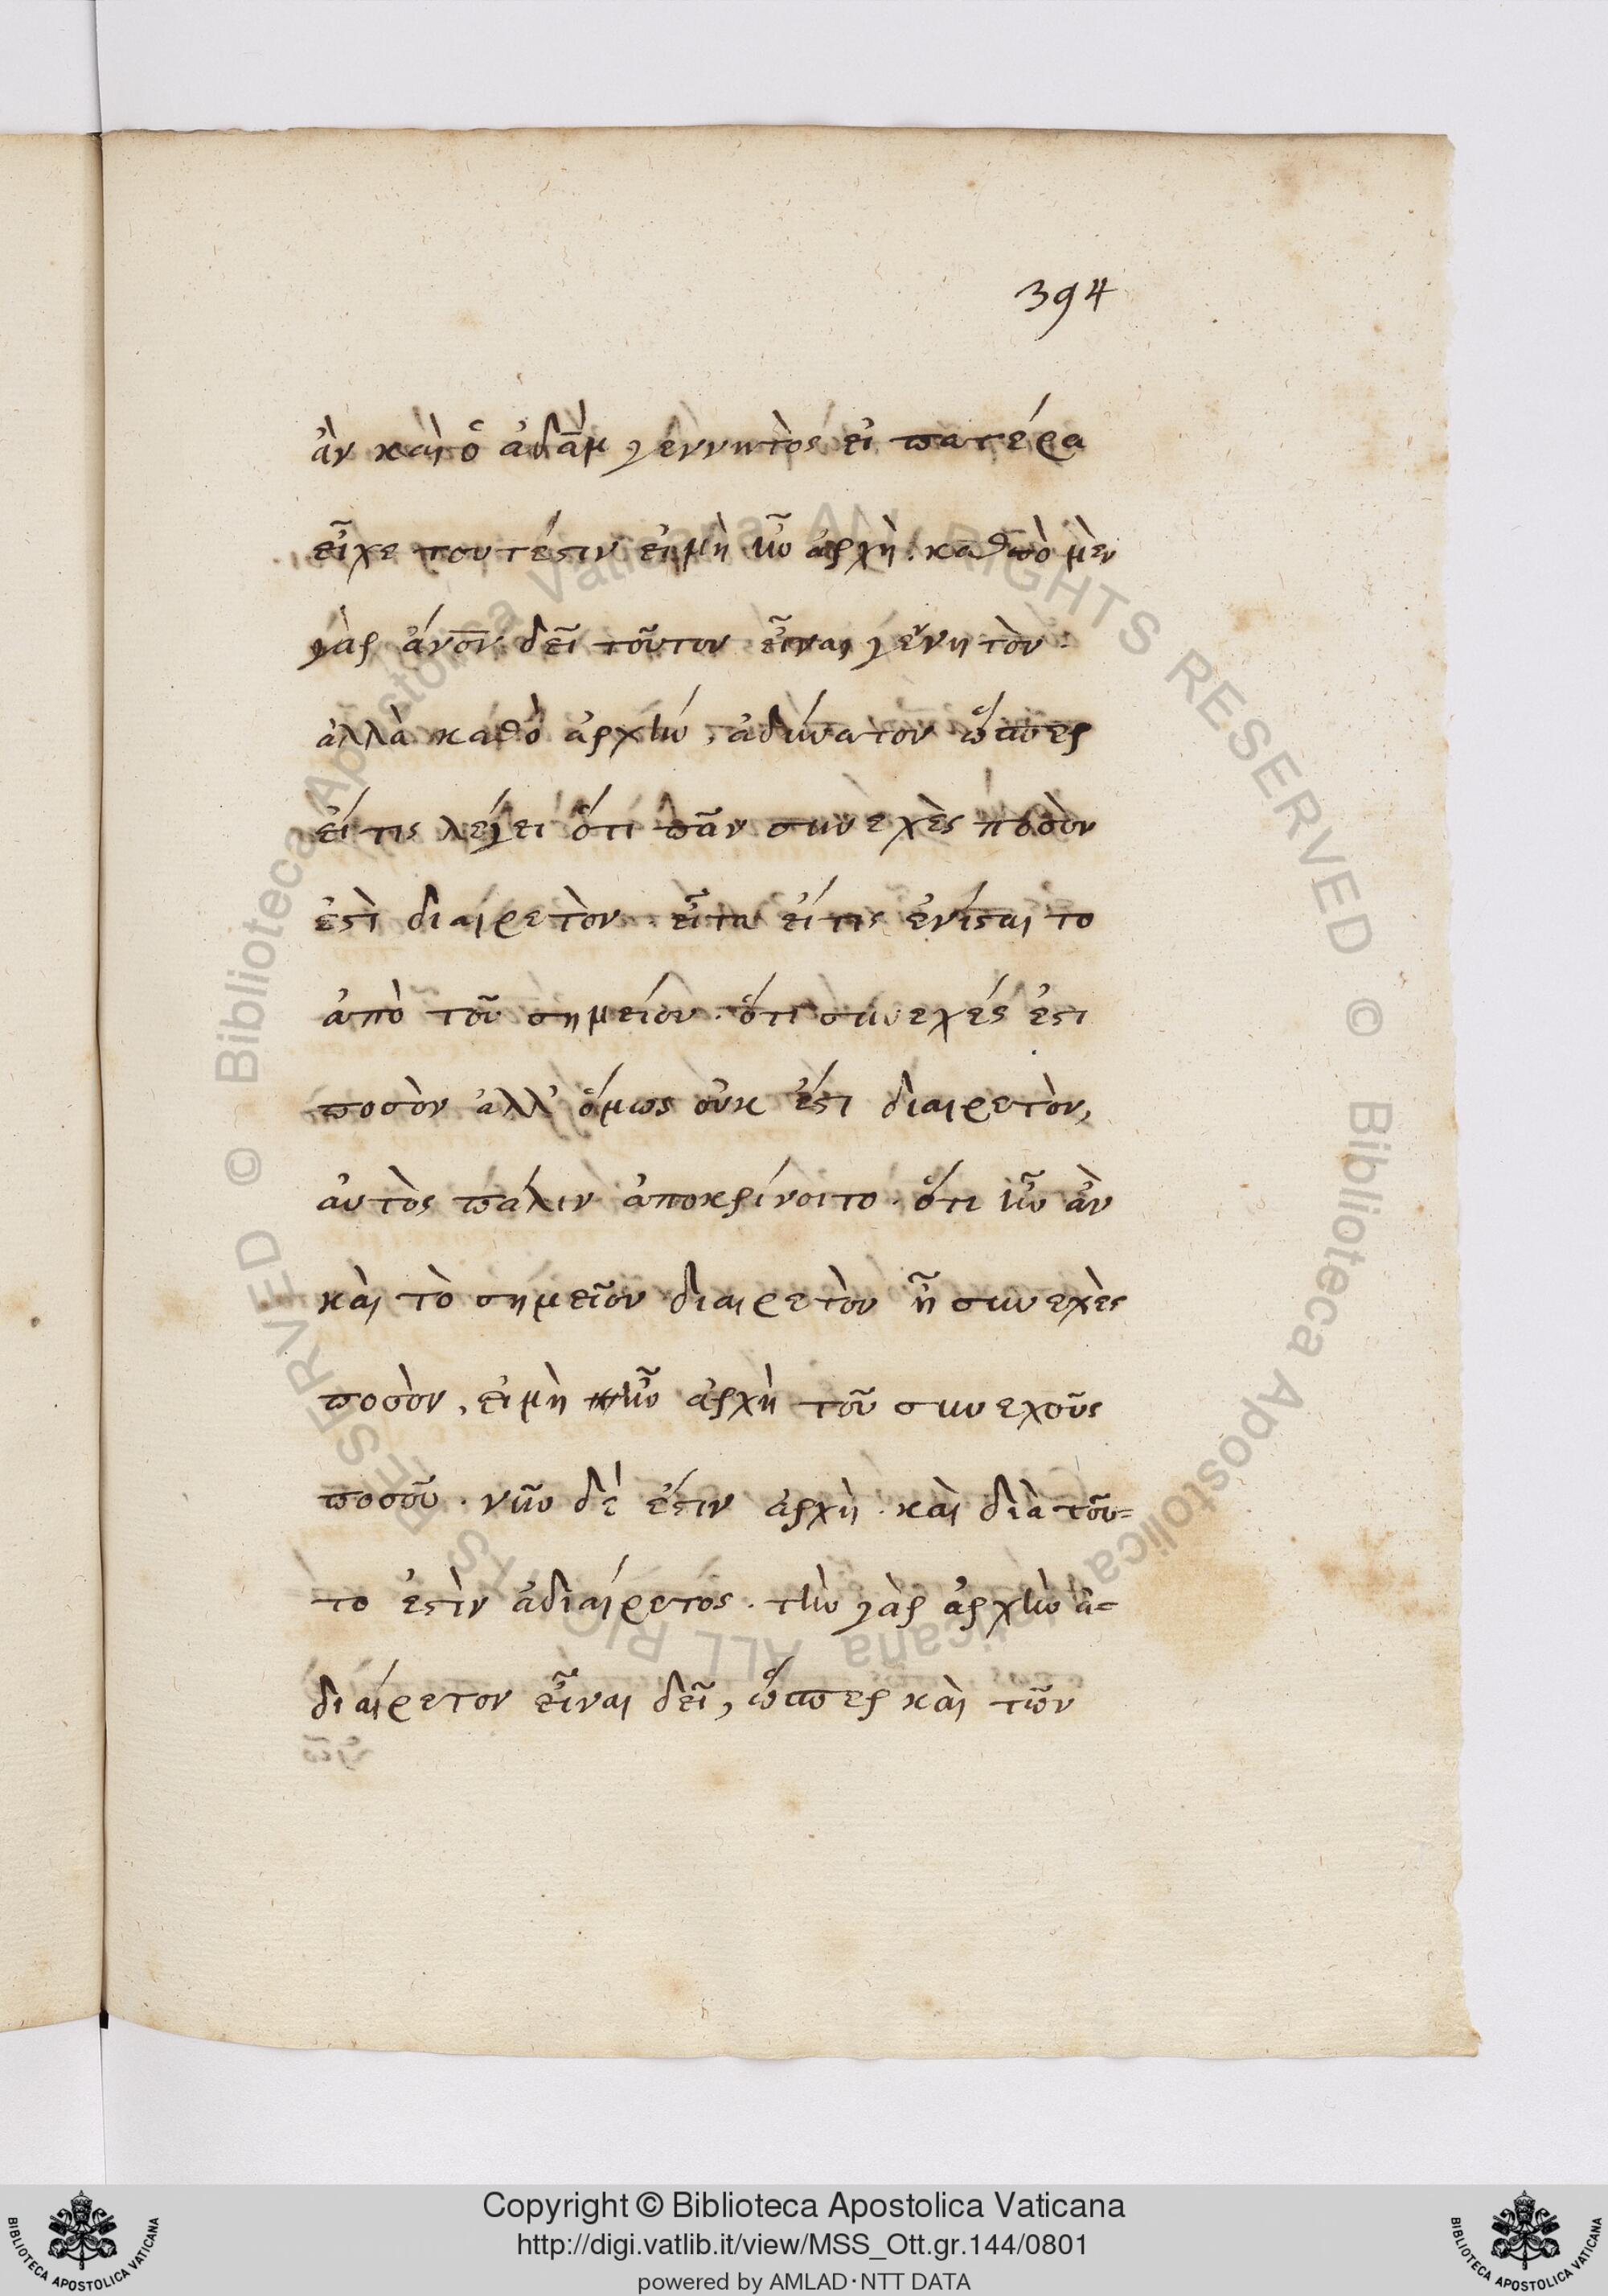 394
ἂν καὶ ὁ ἀδὰμ γεννητὸς εἰ πατέρα
εἶχε τουτέστιν εἰ μὴ ἦν ἀρχὴ. καθὸ μὲν
γὰρ ἄνον δεῖ τοῦτον εἶναι γεννητὸν.
ἀλλὰ καθὸ ἀρχὴν, ἀδύνατον ὥσπερ
εἴ τις λέγει ὅτι πᾶν συνεχὲς ποσὸν
ἐστὶ διαιρετὸν. εἶτα εἴ τις ἐνίσται το
ἀπὸ τοῦ σημείου. ὅτι συνεχές ἐστι
ποσὸν ἀλλ' ὅμως οὐκ ἔστι διαιρετὸν,
αὐτὸς πάλιν ἀποκρίνοιτο. ὅτι ἦν ἂν
καὶ τὸ σημεῖον διαιρετὸν ἢ συνεχὲς
ποσὸν, εἰ μὴ ἦν ἀρχὴ τοῦ συνεχοῦς
ποσοῦ. νῦν δέ ἐστιν ἀρχὴ. καὶ διὰ τοῦ=
το ἐστὶν ἀδιαίρετος. τὴν γὰρ ἀρχὴν ἀ=
διαίρετον εἶναι δεῖ, ὥσπερ καὶ τῶν
© Biblioteca Apostolica Vaticana ALL RIGHTS RESERVED
© Biblioteca Apostolica Vaticana ALL RIGHTS RESERVED
Copyright © Biblioteca Apostolica Vaticana
http://digi.vatlib.it/view/MSS_Ott.gr.144/0801
powered by AMLAD·NTT DATA
BIBLIOTECA APOSTOLICA VATICANA
BIBLIOTECA APOSTOLICA VATICANA